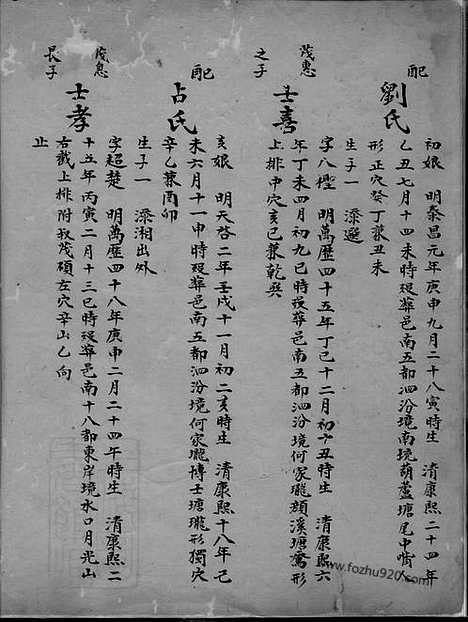 配
劉氏
初娘　明泰昌元年庚申九月二十八寅時生　清康熙二十四年
乙丑七月十四未時殁葬邑南五都泗汾境南境葫蘆塘尾中嘴
形正穴癸丁兼丑未
生子一　添選
茂惠
之子
士喜
字八樫　明萬歷四十五年丁巳十二月初六丑時生　清康熙六
年丁未四月初九巳時殁葬邑南五都泗汾境何家瓏顔溪塘篤形
上排中穴亥巳兼乾巽
配
占氏
亥娘　明天啓二年壬戌十一月初二亥時生　清康熙十八年己
未六月十一申時殁葬邑南五都泗汾境何家瓏博士塘瓏形獨穴
辛乙兼酉卯
生子一　添湘出外
茂惠
長子
士孝
字超楚　明萬歷四十八年庚申二月二十四午時生　清康熙二
十五年丙寅二月十三巳時殁葬邑南十八都東岸境水口月光山
右截上排附叔茂碩左穴辛山乙向
止
www.fozhu920.com